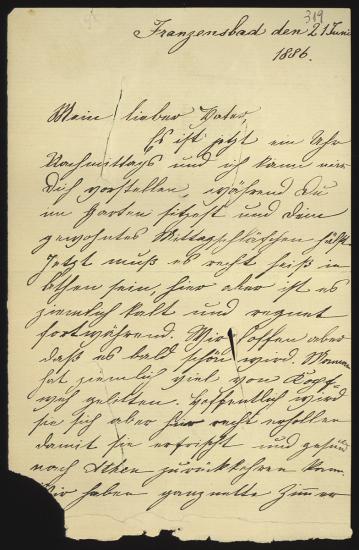 319
Franzensbad den 21 Juni
1886.
Mein lieber Vater,
Es ist jetzt ein Uhr
Nachmittags und ich kann mir
Dich vorstellen, während Du
im Garten sitzest und Dein
gewohntes Mittagschläfchen hältst
Jetzt muß es recht heiß in
Athen sein, hier aber ist es
ziemlich kalt und regnet
fortwährend. Wir hoffen aber
daß es bald schön wird. Mama
hat ziemlich viel von Kopf-
weh gelitten. Hoffentlich wird
sie sich aber hier recht erholen
damit sie erfrischt und gesund
nach Athen zurückkehren kann.
Wir haben ganz nette Zimmer